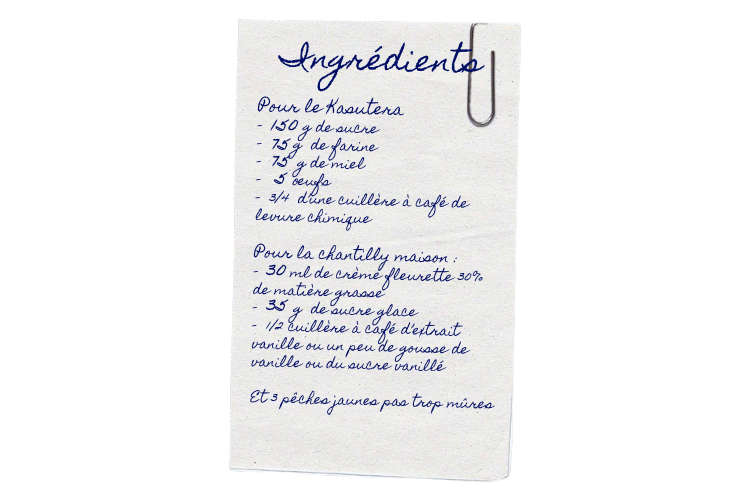 Ingrédients
Pour le Kasutera
- 150 g de sucre
- 75 g de farine
- 75 g de miel
- 5 oeufs
- 3/4 d'une cuillère à café de
levure chimique
Pour la chantilly maison :
- 30 ml de crème fleurette 30%
de matière grasse
- 35 g de sucre glace
- 1/2 cuillère à café d'extrait
vanille ou un peu de gousse de
vanille ou du sucre vanillé
Et 3 pêches jaunes pas trop mûres